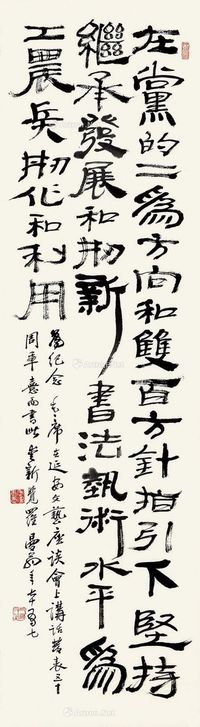 在黨的二爲方向和雙百方針指引下堅持
繼承發展和刱新書法藝術水平爲
工農兵刱作和利用
爲紀念毛主席在延安文藝座談會上講話發表三十
周年意而書此愛新覺羅年七十有七